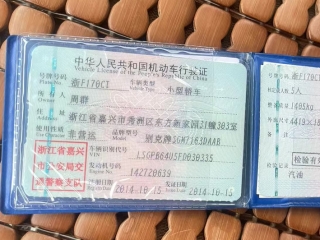 中华人民共和国机动车行驶证
Vehicle License of the People's Republic of China
号牌号码 浙F170CT 车辆类型 小型轿车
所有人 周群
住址 浙江省嘉兴市秀洲区东方新家园31幢303室
使用性质 非营运 品牌型号 别克牌SGM7163DAAB
浙江省嘉兴
市公安局交
通警察支队
车辆识别代号 LSGPB64U5FD030335
发动机号码 142720639
注册日期 2014-10-15 发证日期 2014-10-15
号牌号码 浙F170CT
5人
检验有效
汽油